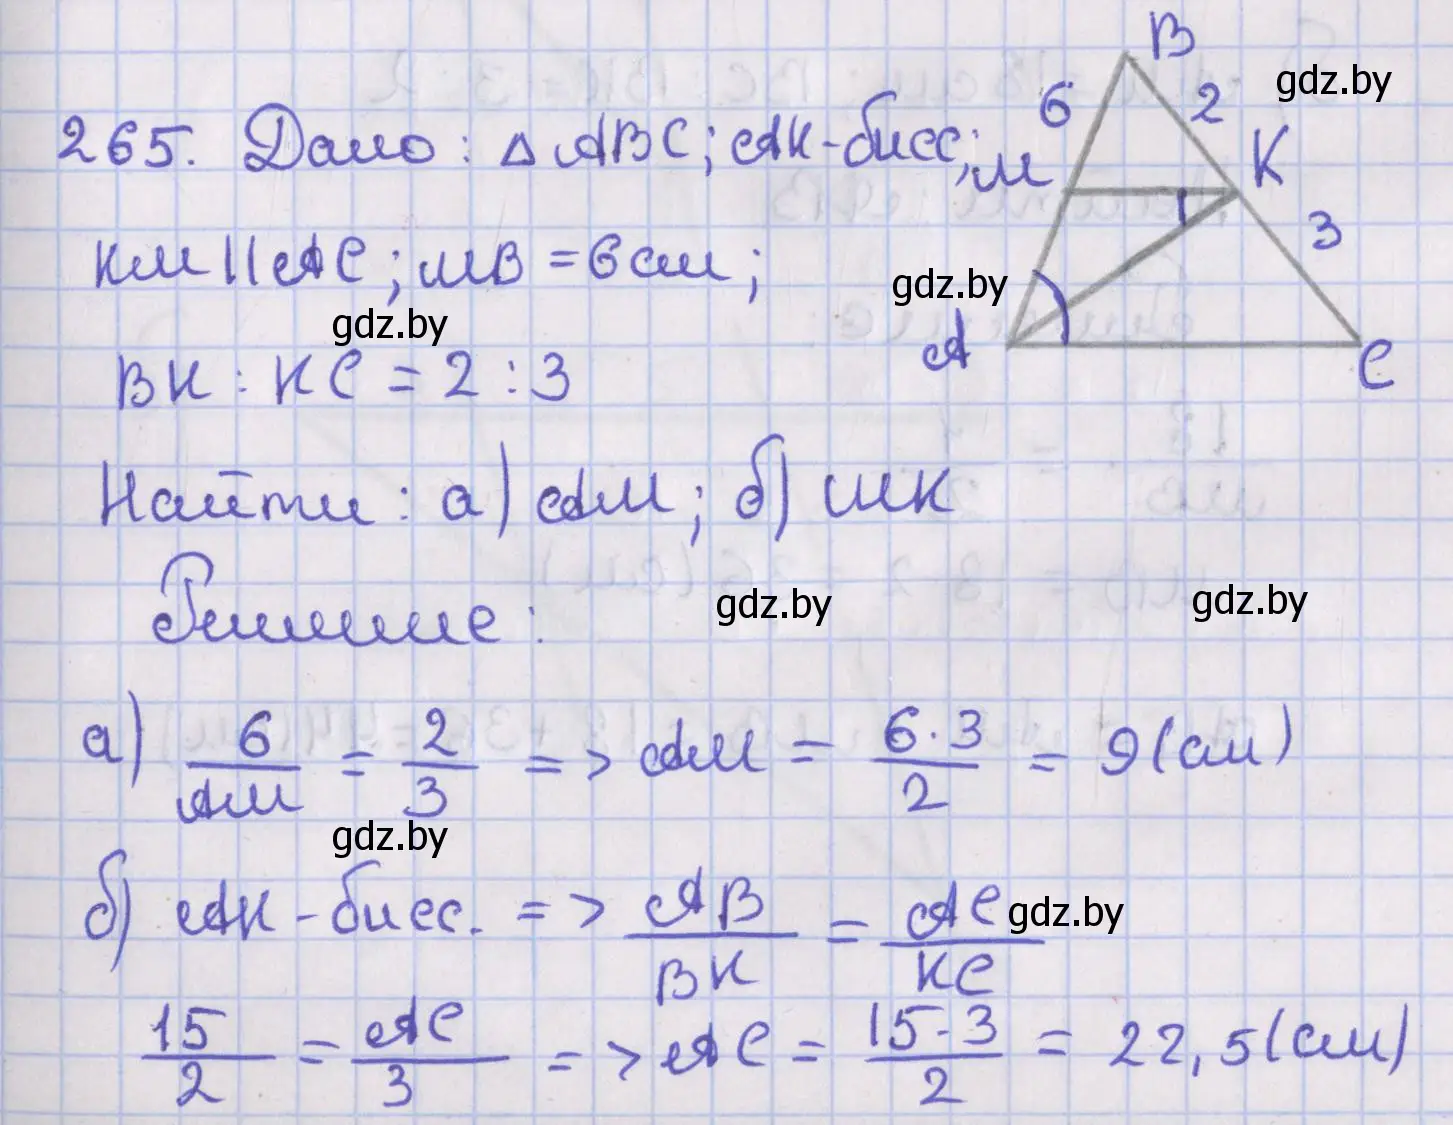 265. Дано: △ ABC; AK-бисс,
KM || AC; MB = 6 см;
BK : KC = 2 : 3
Найти: а) AM; б) MK
Решение:
а) 6/AM = 2/3 => AM = 6·3/2 = 9 (см)
б) AK - бисс. => AB/BK = AC/KC
15/2 = AC/3 => AC = 15·3/2 = 22,5 (см)
B
6
2
M
K
1
3
A
C
gdz.by
gdz.by
gdz.by
gdz.by
gdz.by
gdz.by
gdz.by